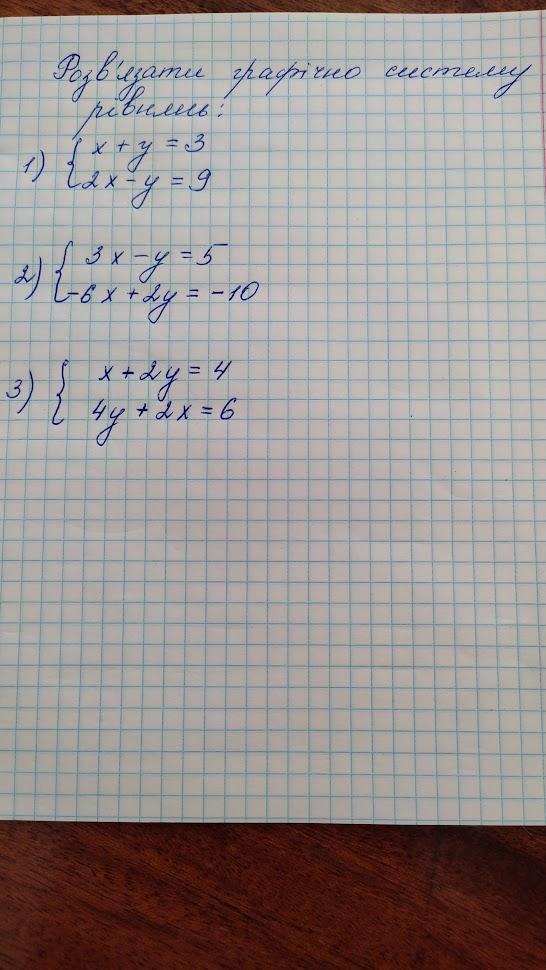 Розв'язати графічно систему
рівнянь:
1) { x + y = 3
2x - y = 9
2) { 3x - y = 5
-6x + 2y = -10
3) { x + 2y = 4
4y + 2x = 6